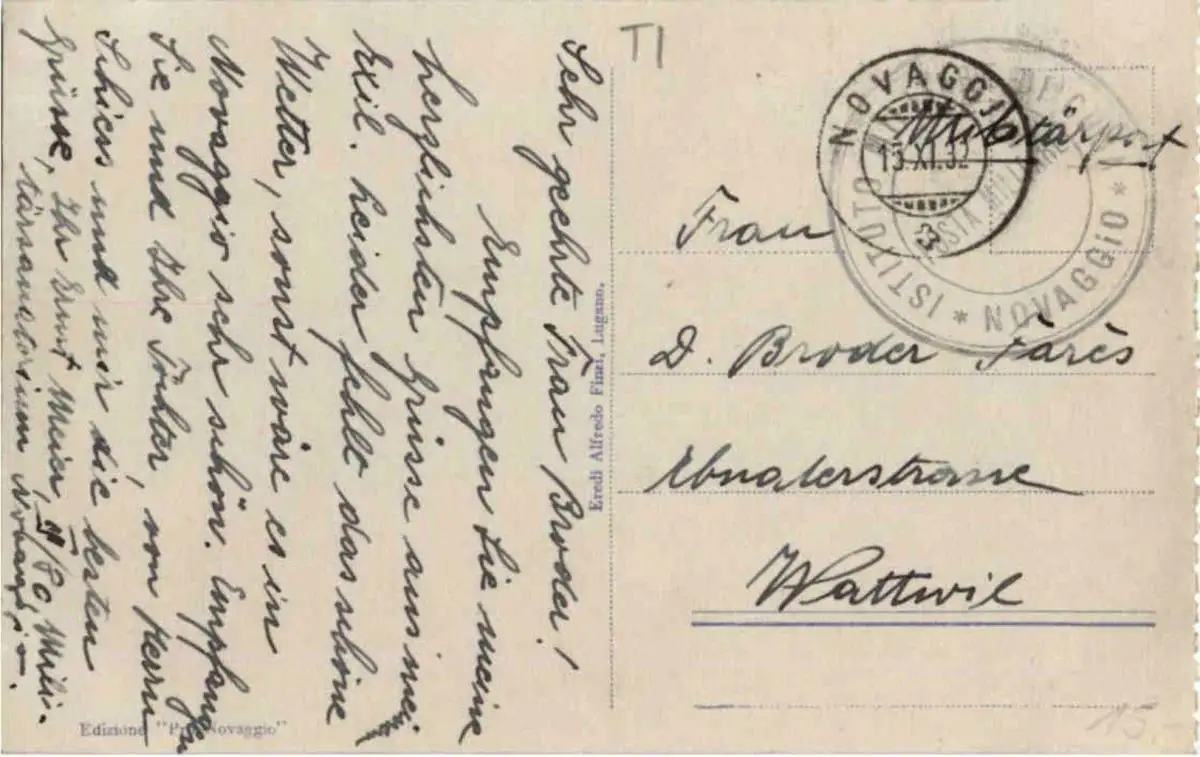 Sehr geehrte Frau Broder!
Empfangen Sie meine
herzlichsten Grüsse aus mei-
Exil. Leider fehlt das schöne
Wetter, sonst wäre es in
Novaggio sehr schön. Empfangen
Sie und Ihre Töchter, von Herrn
Schiess und mir die besten
Grüsse, Ihr Ernst Meier, /80 Mili-
tärsanatorium Novaggio.
Edizione "Pro Novaggio"
Eredi Alfredo Finzi, Lugano.
TI
NOVAGGIO
13.XI.32
3
ISTITUTO
POSTA MILITARE
* NOVAGGIO *
Militärpost
Frau
D. Broder Farès
Ebnaterstrasse
Wattwil
15.-